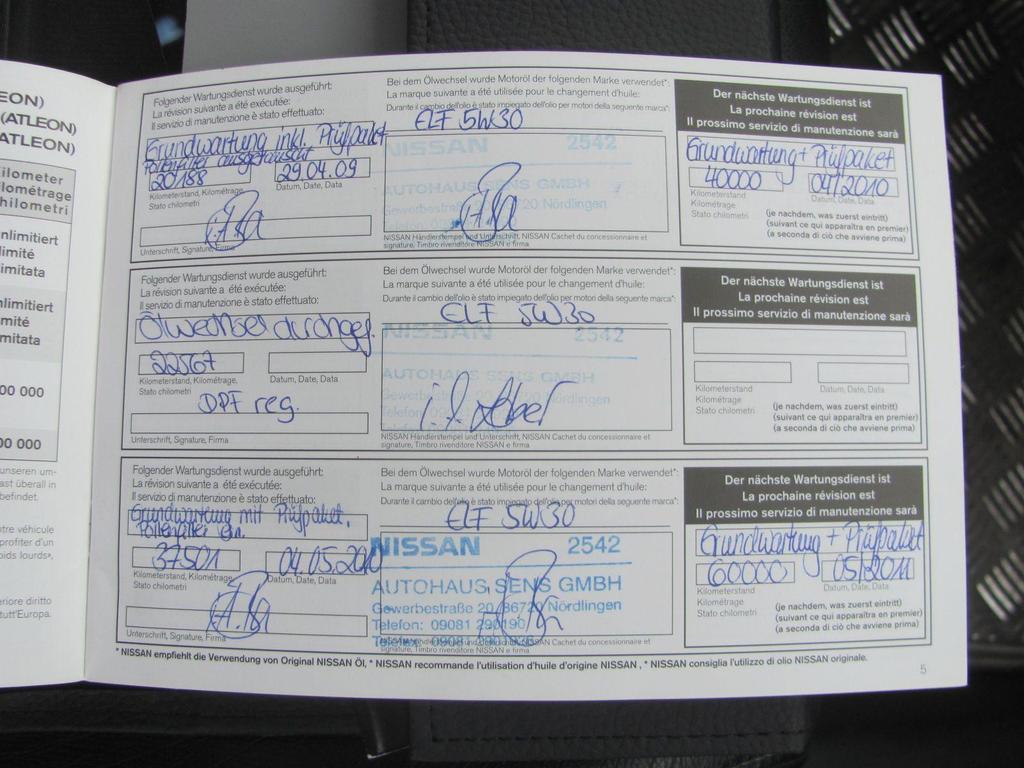 EON)
(ATLEON)
ATLEON)
ilometer
lométrage
hilometri
nlimitiert
limité
imitata
nlimitiert
mité
mitata
00 000
00 000
unseren um-
ast überall in
befindet.
tre véhicule
profiter d'un
oids lourds»,
eriore diritto
tutt'Europa.
Folgender Wartungsdienst wurde ausgeführt:
La révision suivante a été exécutée:
Il servizio di manutenzione è stato effettuato:
Grundwartung inkl. Prüfpaket
Pollenfilter ausgetauscht
20188 29.04.09
Kilometerstand, Kilométrage, Datum, Date, Data
Stato chilometri
Unterschrift, Signature, Firma
Bei dem Ölwechsel wurde Motoröl der folgenden Marke verwendet*:
La marque suivante a été utilisée pour le changement d'huile:
Durante il cambio dell'olio è stato impiegato dell'olio per motori della seguente marca*:
ELF 5W30
NISSAN 2542
AUTOHAUS SENS GMBH
Gewerbestraße 20 86720 Nördlingen
NISSAN Händlerstempel und Unterschrift, NISSAN Cachet du concessionnaire et
signature, Timbro rivenditore NISSAN e firma
Der nächste Wartungsdienst ist
La prochaine révision est
Il prossimo servizio di manutenzione sarà
Grundwartung + Prüfpaket
40000 04/2010
Kilometerstand Datum, Date, Data
Kilométrage
Stato chilometri
(je nachdem, was zuerst eintritt)
(suivant ce qui apparaîtra en premier)
(a seconda di ciò che avviene prima)
Folgender Wartungsdienst wurde ausgeführt:
La révision suivante a été exécutée:
Il servizio di manutenzione è stato effettuato:
Ölwechsel durchgef.
22567
Kilometerstand, Kilométrage, Datum, Date, Data
Stato chilometri
DPF reg.
Unterschrift, Signature, Firma
Bei dem Ölwechsel wurde Motoröl der folgenden Marke verwendet*:
La marque suivante a été utilisée pour le changement d'huile:
Durante il cambio dell'olio è stato impiegato dell'olio per motori della seguente marca*:
ELF 5W30
NISSAN 2542
AUTOHAUS SENS GMBH
Gewerbestraße 20 86720 Nördlingen
Telefon:
NISSAN Händlerstempel und Unterschrift, NISSAN Cachet du concessionnaire et
signature, Timbro rivenditore NISSAN e firma
Der nächste Wartungsdienst ist
La prochaine révision est
Il prossimo servizio di manutenzione sarà
Kilometerstand Datum, Date, Data
Kilométrage
Stato chilometri
(je nachdem, was zuerst eintritt)
(suivant ce qui apparaîtra en premier)
(a seconda di ciò che avviene prima)
Folgender Wartungsdienst wurde ausgeführt:
La révision suivante a été exécutée:
Il servizio di manutenzione è stato effettuato:
Grundwartung mit Prüfpaket,
Pollenfilter ern.
37501 04.05.2010
Kilometerstand, Kilométrage, Datum, Date, Data
Stato chilometri
Unterschrift, Signature, Firma
Bei dem Ölwechsel wurde Motoröl der folgenden Marke verwendet*:
La marque suivante a été utilisée pour le changement d'huile:
Durante il cambio dell'olio è stato impiegato dell'olio per motori della seguente marca*:
ELF 5W30
NISSAN 2542
AUTOHAUS SENS GMBH
Gewerbestraße 20 86720 Nördlingen
Telefon: 09081 290190
NISSAN Cachet du concessionnaire et
signature, Timbro rivenditore NISSAN e firma
Der nächste Wartungsdienst ist
La prochaine révision est
Il prossimo servizio di manutenzione sarà
Grundwartung + Prüfpaket
60000 05/2011
Kilometerstand Datum, Date, Data
Kilométrage
Stato chilometri
(je nachdem, was zuerst eintritt)
(suivant ce qui apparaîtra en premier)
(a seconda di ciò che avviene prima)
* NISSAN empfiehlt die Verwendung von Original NISSAN Öl, * NISSAN recommande l'utilisation d'huile d'origine NISSAN , * NISSAN consiglia l'utilizzo di olio NISSAN originale.
5